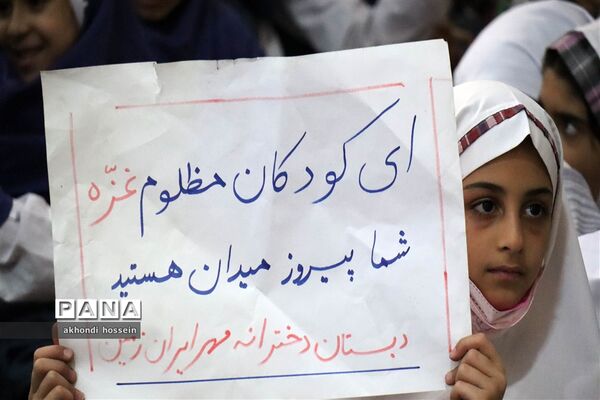 ای کودکان مظلوم غزّه
شما پیروز میدان هستید
دبستان دخترانه مهر ایران زمین
PANA
akhondi hossein